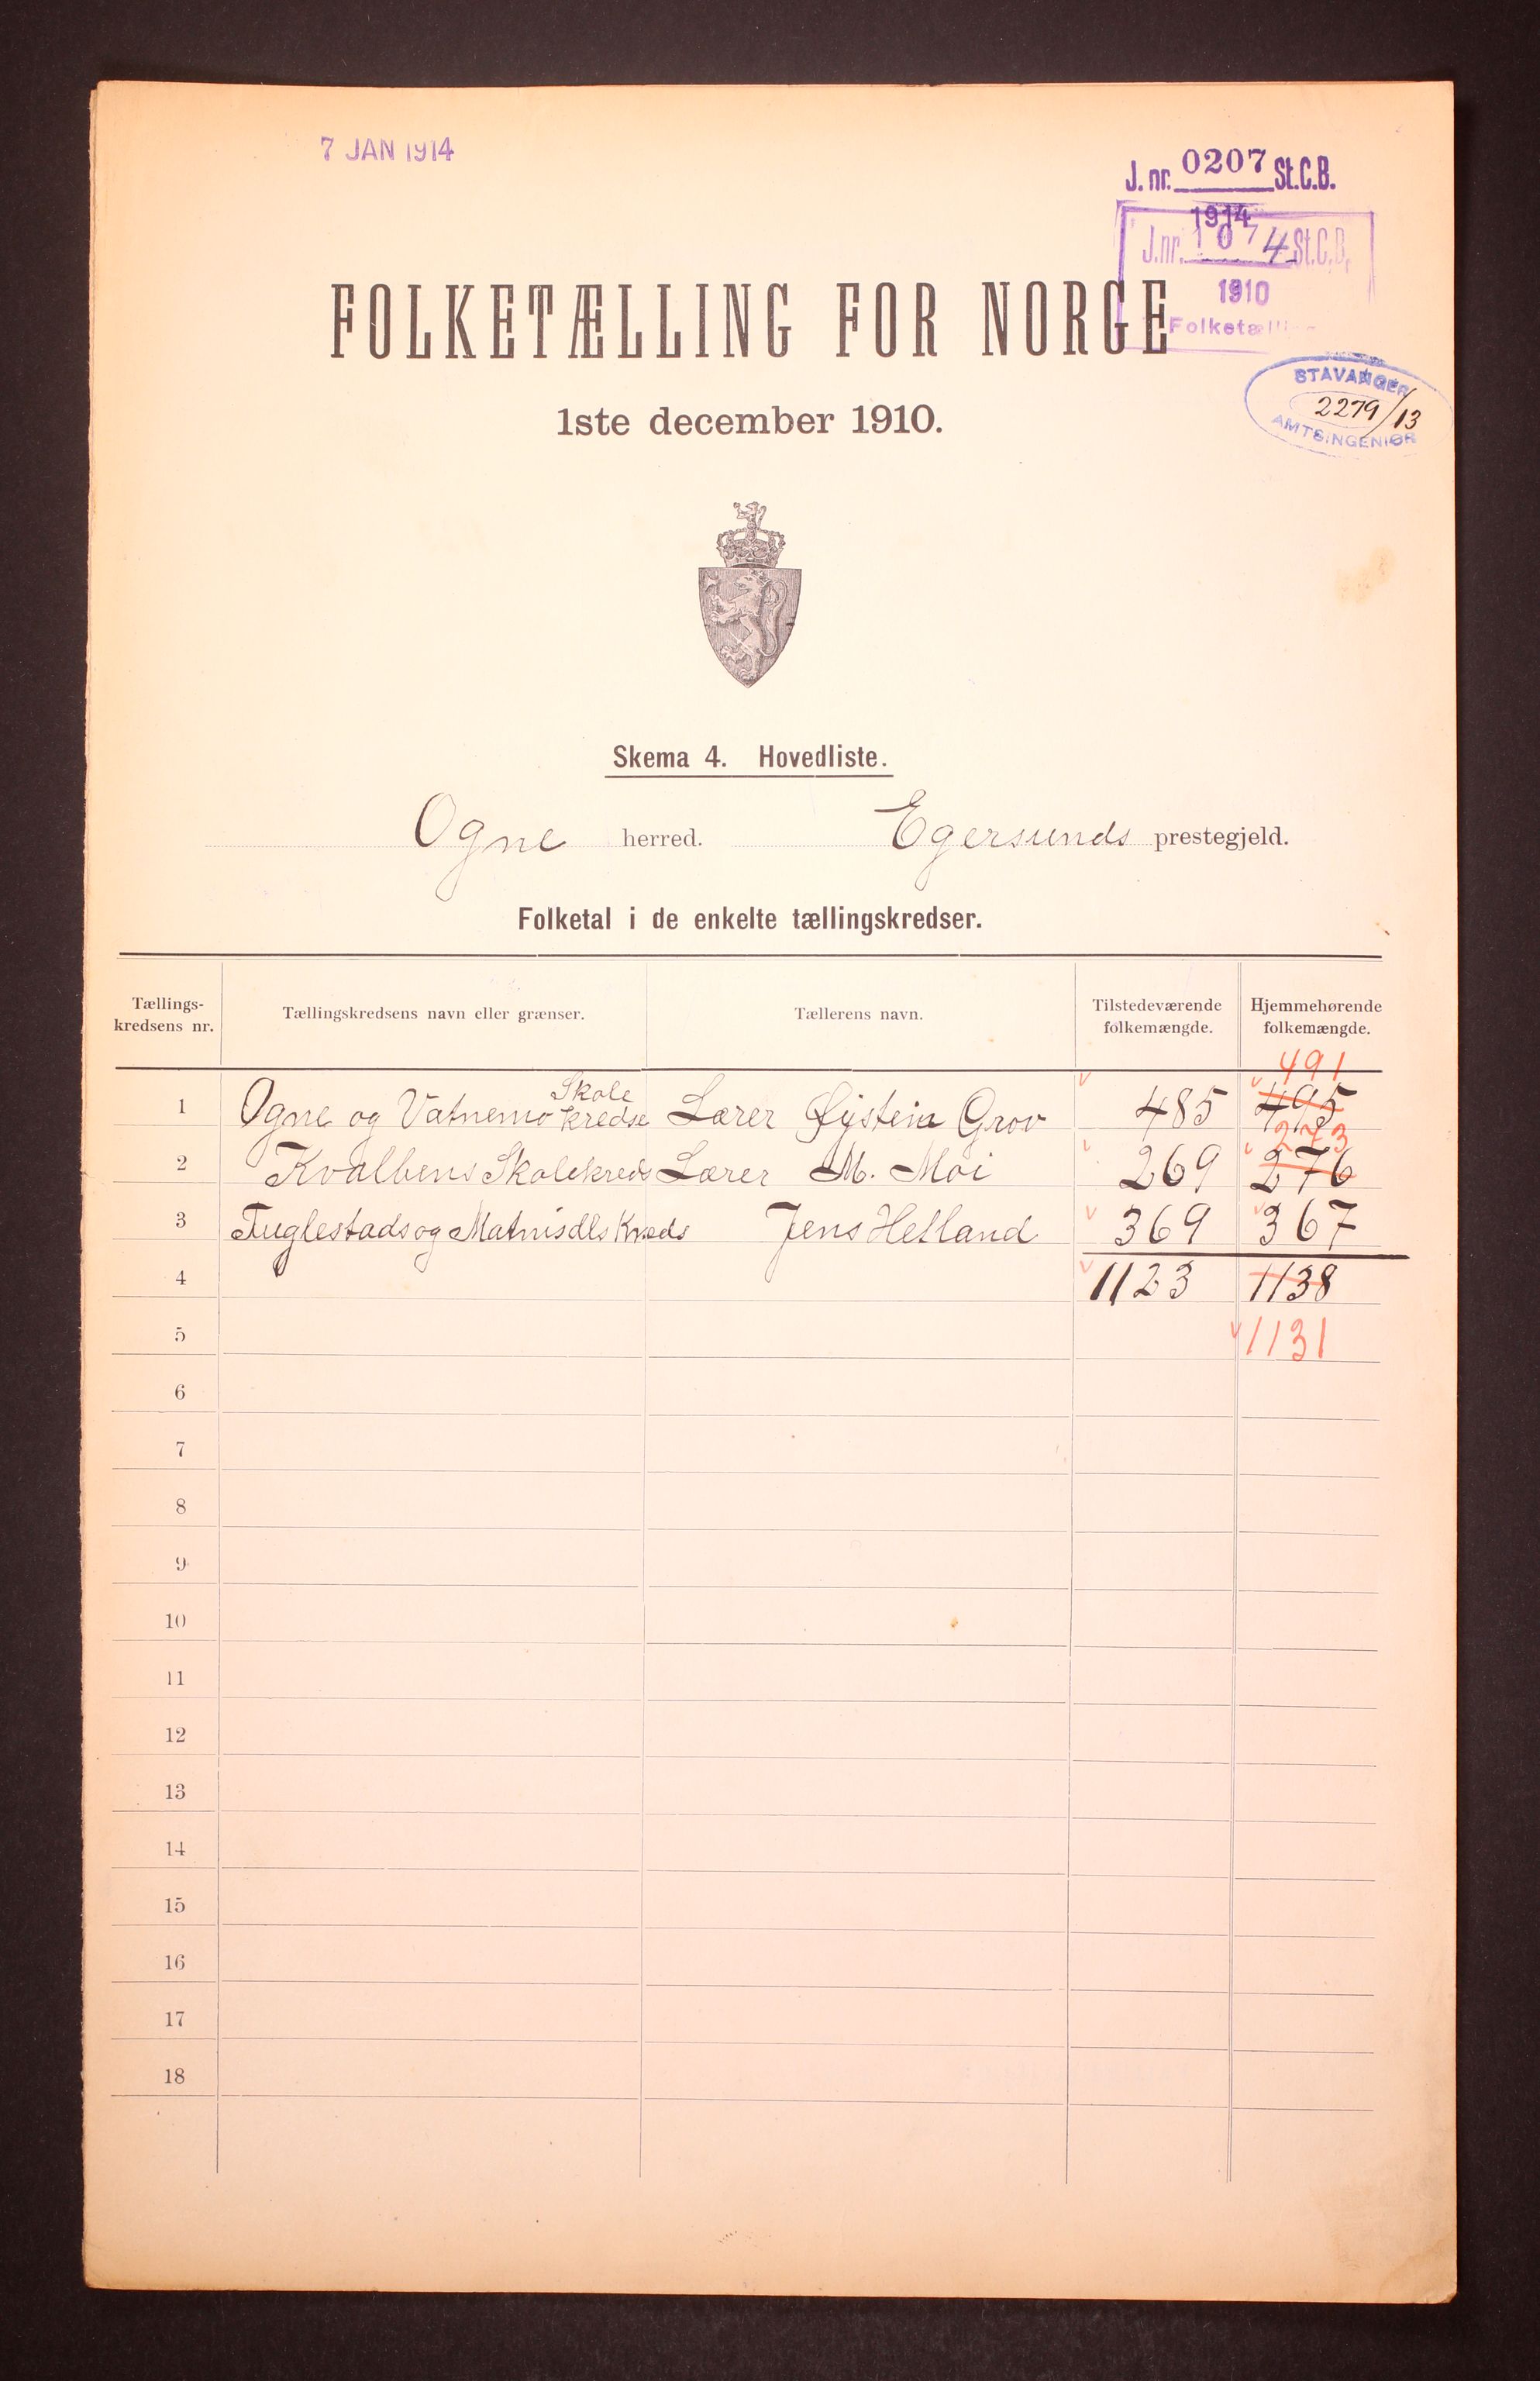 7 JAN 1914
J. nr. 0207 St.C.B.
1914
J.nr. 1074 St.C.B.
1910
Folketæl
FOLKETÆLLING FOR NORGE
STAVANGER
2279/13
AMTSINGENIØR
1ste december 1910.
Skema 4. Hovedliste.
Ogne herred. Egersunds prestegjeld.
Folketal i de enkelte tællingskredser.
Tællings-kredsens nr. Tællingskredsens navn eller grænser. Tællerens navn. Tilstedeværende folkemængde. Hjemmehørende folkemængde.
491
1 Ogne og Vatnemo Skole kredse Lærer Øystein Grov 485 495
273
2 Kvalbens Skolekreds Lærer M. Moi 269 276
3 Fuglestads og Kreds Jens Helland 369 367
4 1123 1138
5 1131
6
7
8
9
10
11
12
13
14
15
16
17
18